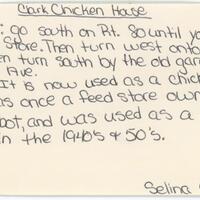 Clark Chicken House
: go south on Rt. So until yo
Store. Then turn west onto
en turn south by the old gar
Ave.
It is now used as a chick
as once a feed store own
bot, and was used as a
in the 1940's & 50's.
Selina